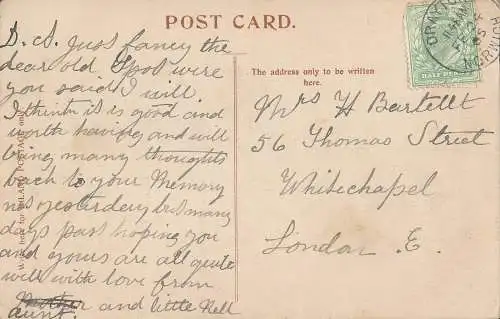 POST CARD.
D. A. Just fancy the
dear old Spot were
you said I will
I think it is good and
worth having and will
bring many thoughts
back to your Memory
not yesterday but many
days past hoping you
and yours are all quite
well with love from
Mother and little Nell
aunt.
The address only to be written
here.
Mrs H Bartlett
56 Thomas Street
Whitechapel
London. E.
HALF PENNY
DRAYTON
NORWICH